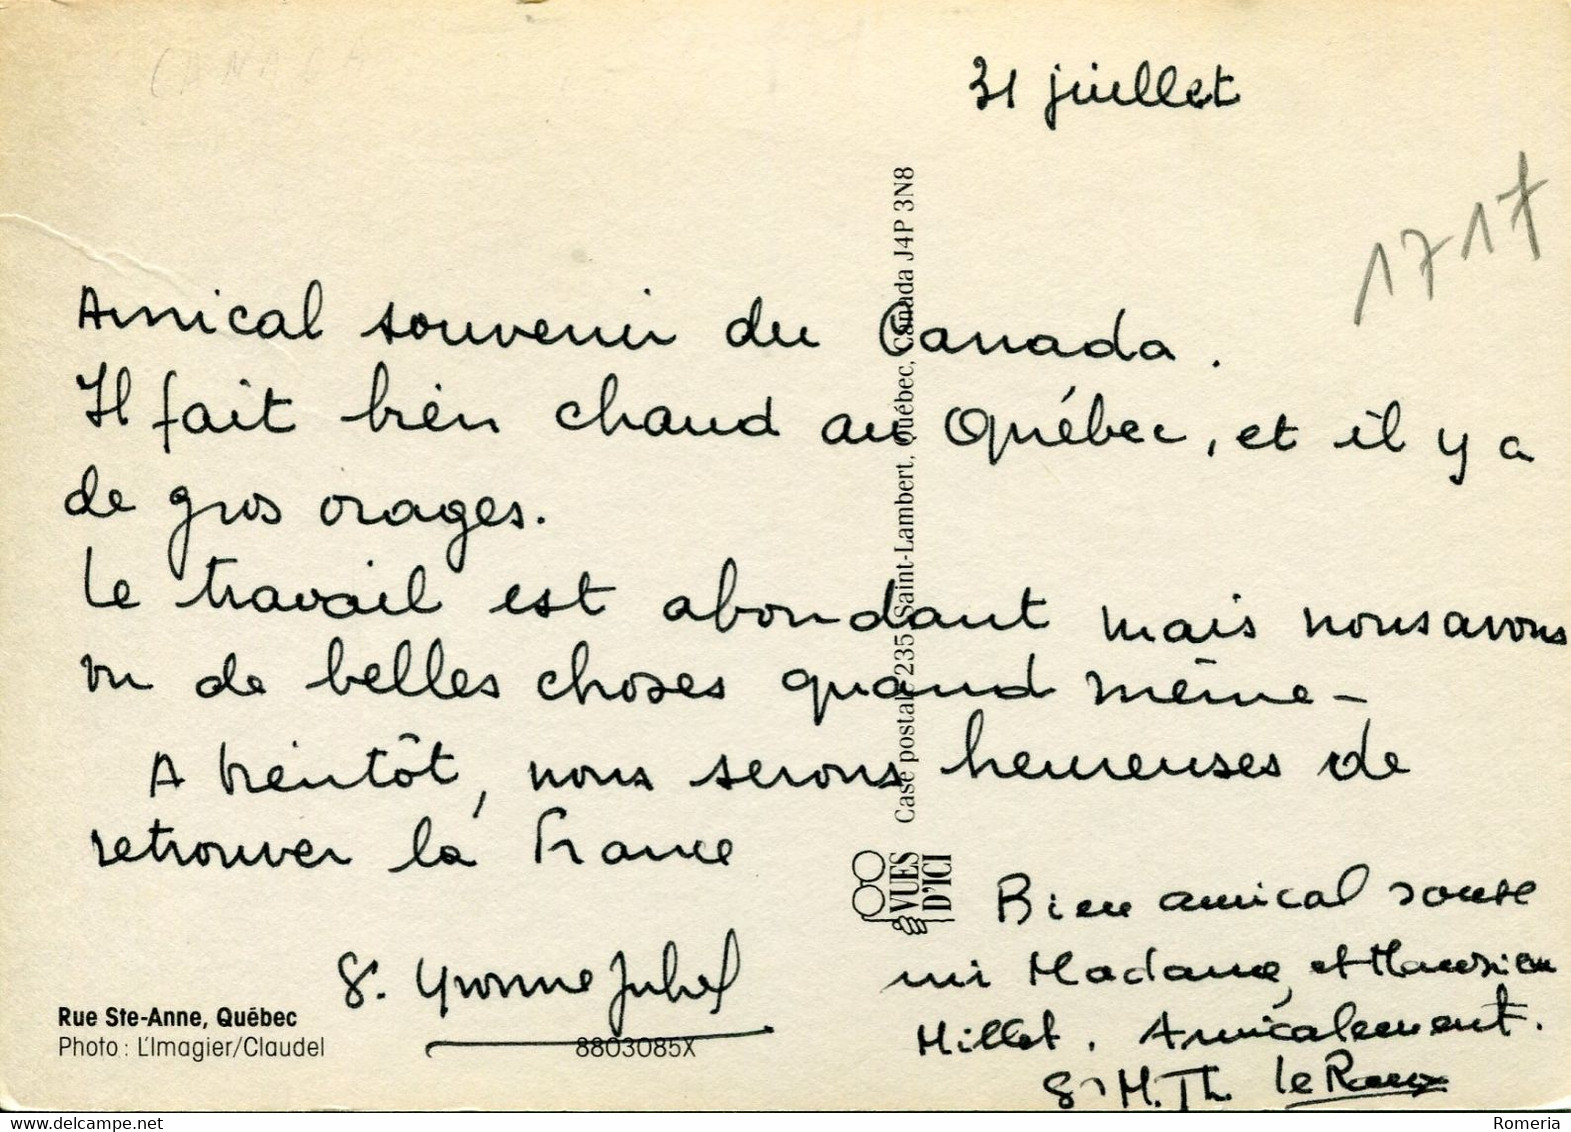 CANADA
31 juillet
1717
Amical souvenir du Canada.
Il fait bien chaud au Québec, et il y a
de gros orages.
Le travail est abondant mais nous avons
vu de belles choses quand même -
A bientôt, nous serons heureuses de
retrouver la France
S. Yvonne Juhel
Bien amical souve
nir Madame, et Monsieur
Millet. Amicalement.
S. M. Th. Le Roux
Case postale 235, Saint-Lambert, Québec, Canada J4P 3N8
VUES
D'ICI
Rue Ste-Anne, Québec
Photo : L'Imagier/Claudel
8803085X
delcampe.net
Romeria